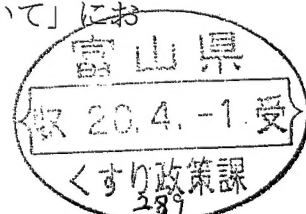 いて」にお
富山県
収 20.4.-1 受
くすり政策課
289